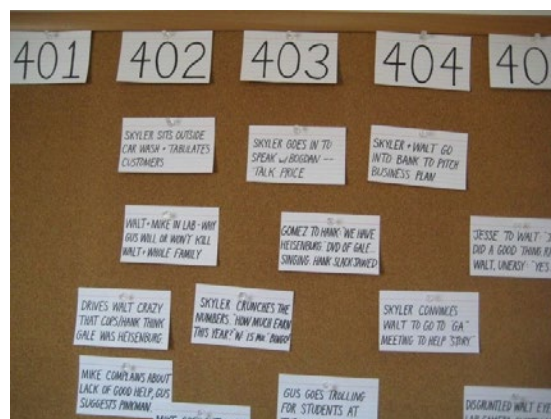 401
402
403
404
40
SKYLER SITS OUTSIDE
CAR WASH + TABULATES
CUSTOMERS
SKYLER GOES IN TO
SPEAK w/ BOGDAN --
TALK PRICE
SKYLER + WALT GO
INTO BANK TO PITCH
BUSINESS PLAN
WALT + MIKE IN LAB - WHY
GUS WILL OR WON'T KILL
WALT + WHOLE FAMILY
GOMEZ TO HANK "WE HAVE
HEISENBURG" DVD OF GALE...
SINGING. HANK SLACK JAWED
JESSE TO WALT
DID A GOOD THING,
WALT, UNEASY: "YES
DRIVES WALT CRAZY
THAT COPS/HANK THINK
GALE WAS HEISENBURG
SKYLER CRUNCHES THE
NUMBERS. "HOW MUCH EARN
THIS YEAR?" W/ IS MR. "BINGO"
SKYLER CONVINCES
WALT TO GO TO "GA"
MEETING TO HELP "STORY"
MIKE COMPLAINS ABOUT
LACK OF GOOD HELP, GUS
SUGGESTS PINKMAN.
GUS GOES TROLLING
FOR STUDENTS AT
DISGRUNTLED WALT